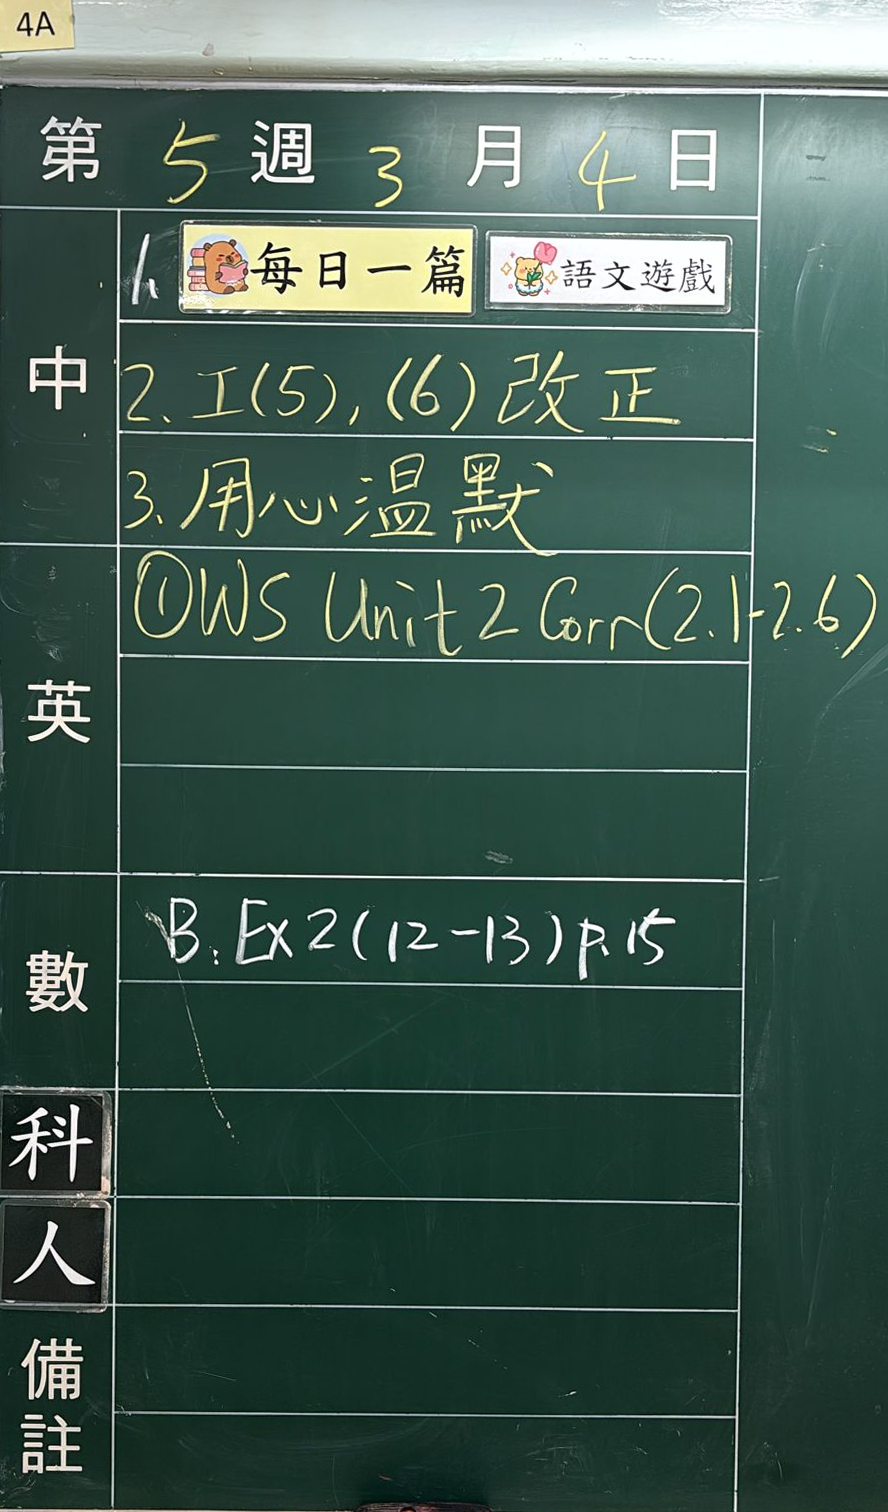 4A
第 5 週 3 月 4 日
中
1. 每日一篇 語文遊戲
2. 工(5), (6) 改正
3. 用心温默
英
① WS Unit 2 Corr (2.1-2.6)
數
B: Ex 2 (12-13) p.15
科
人
備註